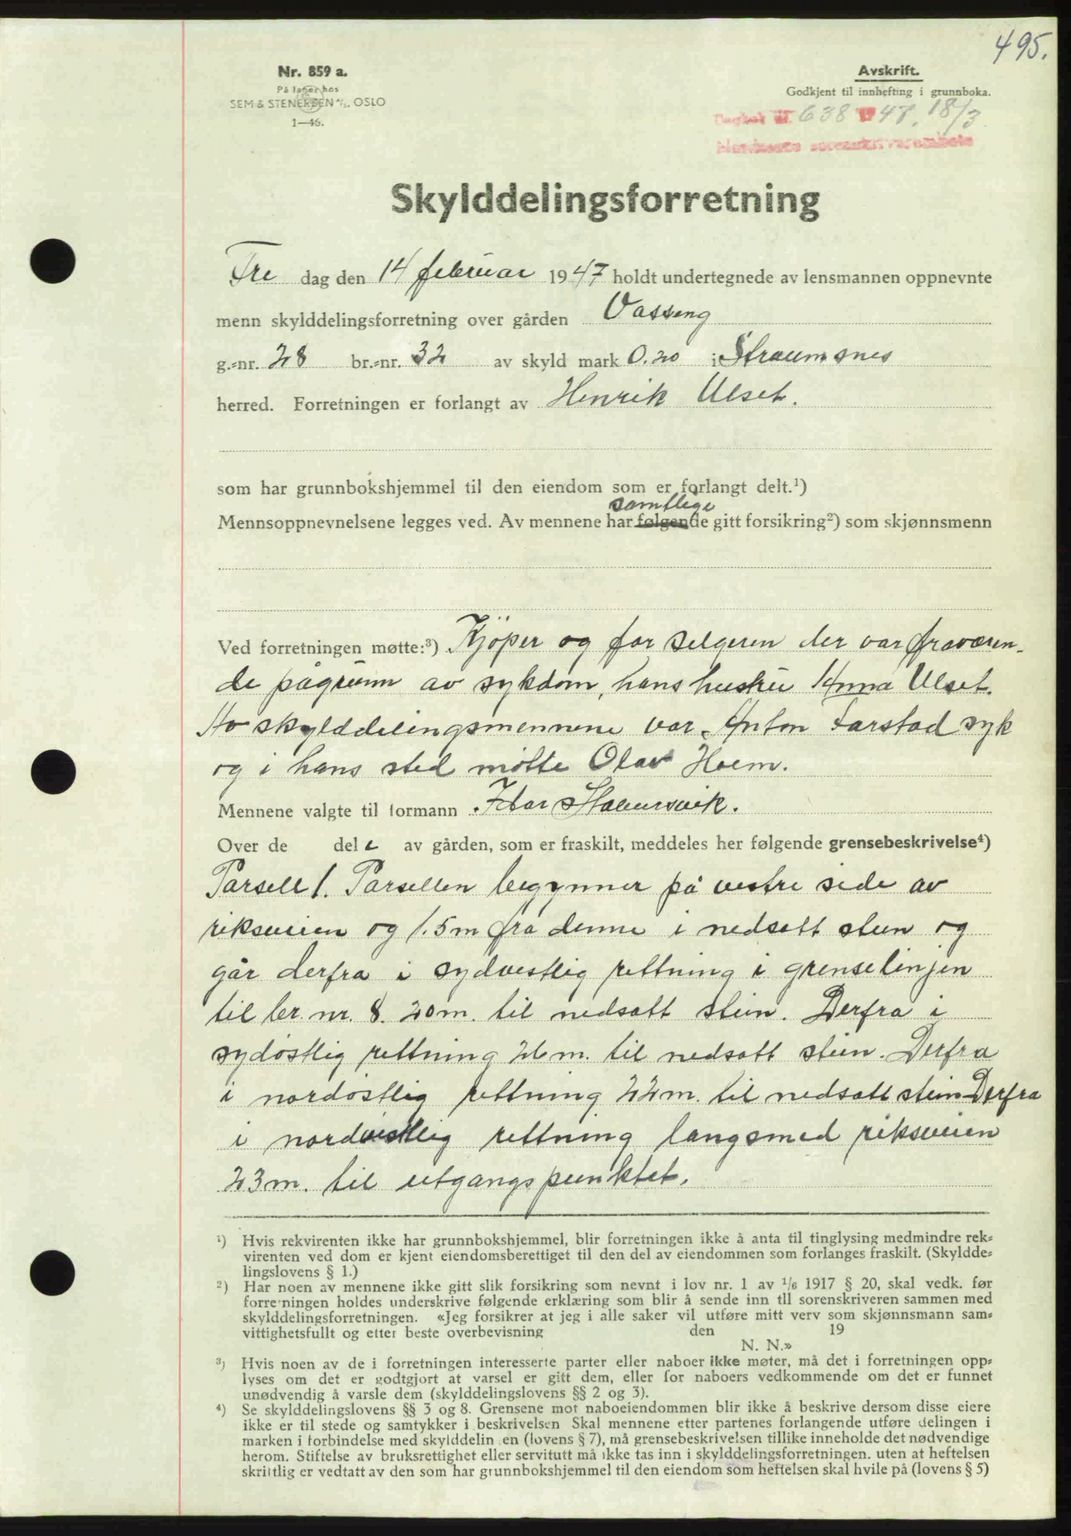 495.
Nr. 859 a.
På lager hos
SEM & STENERSEN A/S, OSLO
1—46.
Avskrift.
Godkjent til innhefting i grunnboka.
Dagbok nr. 638 1947. 18/3
Nordmøre sorenskriverembete
Skylddelingsforretning
Fre dag den 14 februar 1947 holdt undertegnede av lensmannen oppnevnte
menn skylddelingsforretning over gården Vasseng
g.-nr. 28 br.-nr. 32 av skyld mark 0.20 i Straumsnes
herred. Forretningen er forlangt av Henrik Ulset.
som har grunnbokshjemmel til den eiendom som er forlangt delt.¹)
samtlige
Mennsoppnevnelsene legges ved. Av mennene har følgende gitt forsikring²) som skjønnsmenn
Ved forretningen møtte:³) Kjöper og for selgeren der var fraværen-
de pågrunn av sykdom, hans hustru Anna Ulset.
Av skylddelingsmennene var Anton Farstad syk
og i hans sted møtte Olav Hoem.
Mennene valgte til formann
Over de dele av gården, som er fraskilt, meddeles her følgende grensebeskrivelse⁴)
Parsell 1. Parsellen begynner på vestre side av
riksveien og 1.5 m fra denne i nedsatt stein og
går derfra i sydvestlig rettning i grenselinjen
til br. nr. 8. 20 m. til nedsatt stein. Derfra i
sydöstlig rettning 26 m. til nedsatt stein. Derfra
i nordöstlig rettning 22 m. til nedsatt stein Derfra
i nordvestlig rettning langsmed riksveien
23 m. til utgangspunktet.
¹) Hvis rekvirenten ikke har grunnbokshjemmel, blir forretningen ikke å anta til tinglysing medmindre rek-
virenten ved dom er kjent eiendomsberettiget til den del av eiendommen som forlanges fraskilt. (Skyldde-
lingslovens § 1.)
²) Har noen av mennene ikke gitt slik forsikring som nevnt i lov nr. 1 av 1/6 1917 § 20, skal vedk. før
forretningen holdes underskrive følgende erklæring som blir å sende inn til sorenskriveren sammen med
skylddelingsforretningen. «Jeg forsikrer at jeg i alle saker vil utføre mitt verv som skjønnsmann sam-
vittighetsfullt og etter beste overbevisning den 19
N. N.»
³) Hvis noen av de i forretningen interesserte parter eller naboer ikke møter, må det i forretningen opp-
lyses om det er godtgjort at varsel er gitt dem, eller for naboers vedkommende om det er funnet
unødvendig å varsle dem (skylddelingslovens §§ 2 og 3).
⁴) Se skylddelingslovens §§ 3 og 8. Grensene mot naboeiendommen blir ikke å beskrive dersom disse eiere
ikke er til stede og samtykker i beskrivelsen Skal mennene etter partenes forlangende utføre delingen i
marken i forbindelse med skylddelin en (lovens § 7), må grensebeskrivelsen tillike inneholde det nødvendige
herom. Stiftelse av bruksrettighet eller servitutt må ikke tas inn i skylddelingsforretningen. uten at heftelsen
skriftlig er vedtatt av den som har grunnbokshjemmel til den eiendom som heftelsen skal hvile på (lovens § 5)